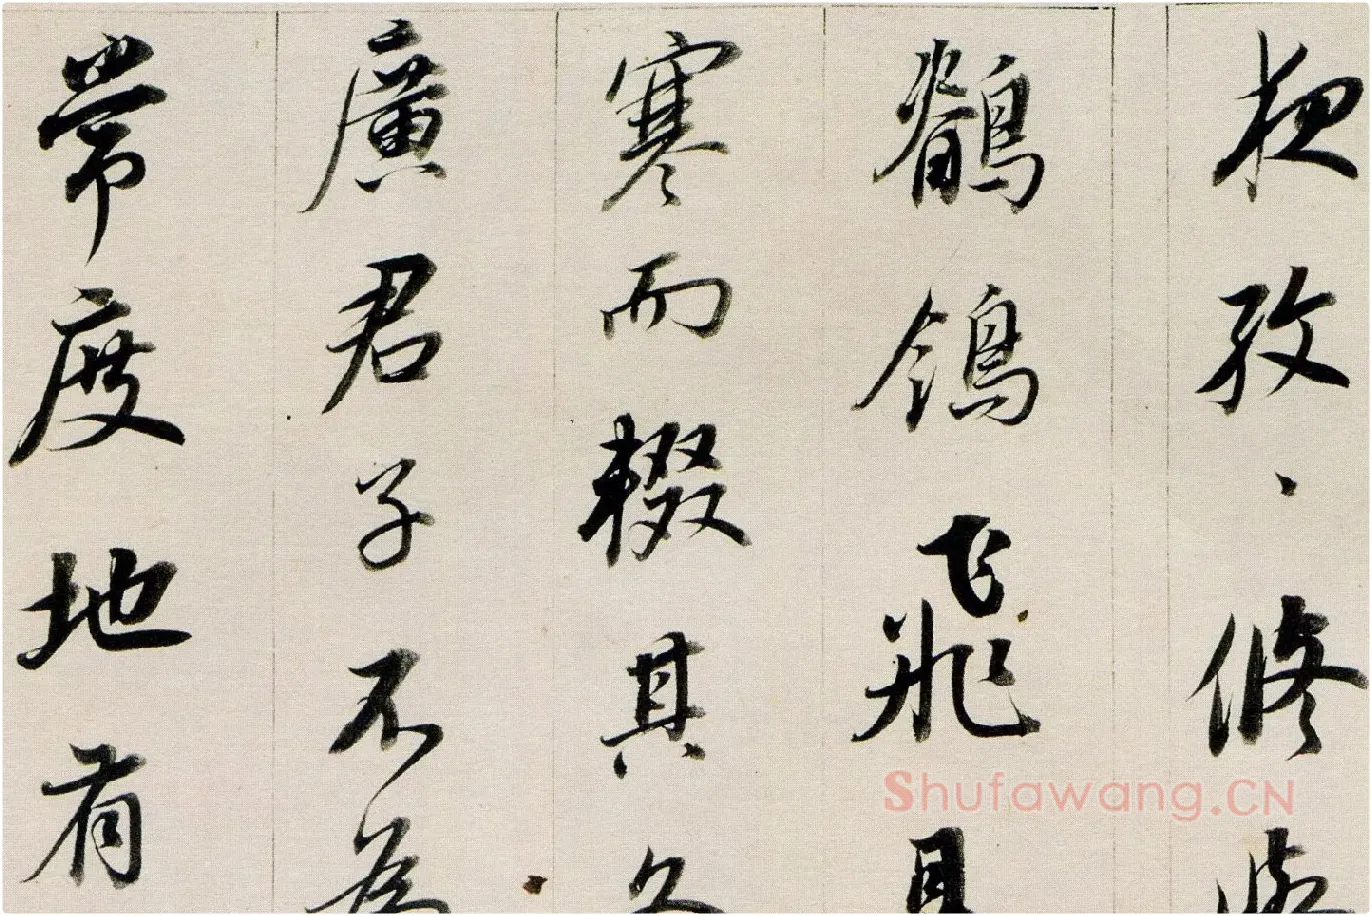 夜孜、修
鶺鴒飛且
寒而輟其冬
廣君子不為
常度地有
Shufawang.CN